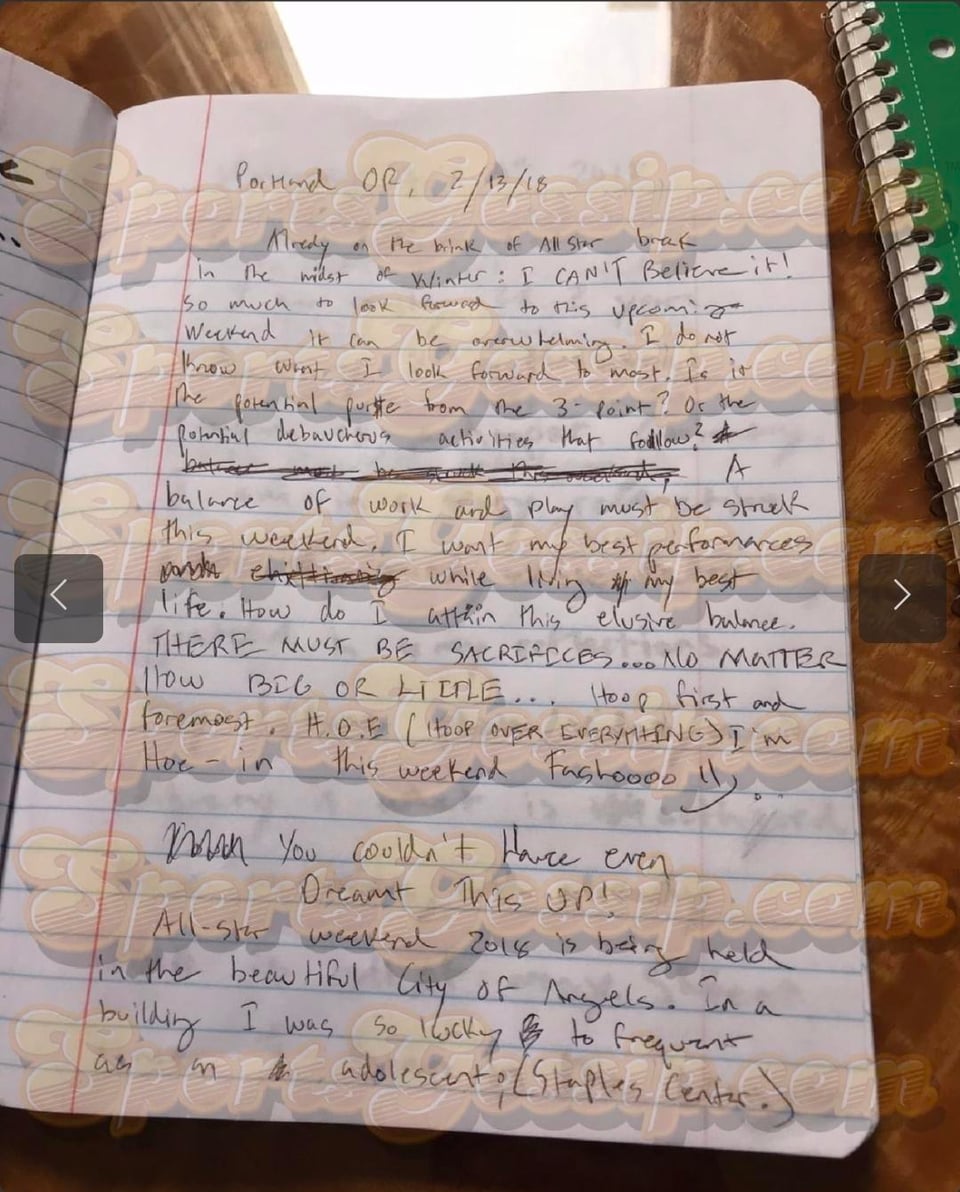 Portland OR, 2/13/18
Alredy on the brink of All Star break
in the midst of Winter: I CAN'T Believe it!
so much to look forward to this upcoming
Weekend it can be overwhelming. I do not
know what I look forward to most. Is it
the potential purse from the 3-point? Or the
potential debaucherous activities that follow?
A
balance of work and play must be struck
this weekend. I want my best performances
while living my best
life. How do I attain this elusive balance.
THERE MUST BE SACRIFICES... NO MATTER
How BIG OR LITTLE... Hoop first and
foremost. H.O.E (HOOP OVER EVERYTHING) I'm
Hoe-in this weekend Fashoooo
You couldn't Have even
Dreamt This UP!
All-star weekend 2018 is being held
in the beautiful City of Angels. In a
building I was so lucky to frequent
as an adolescent; (Staples Center.)
SportsGossip.com